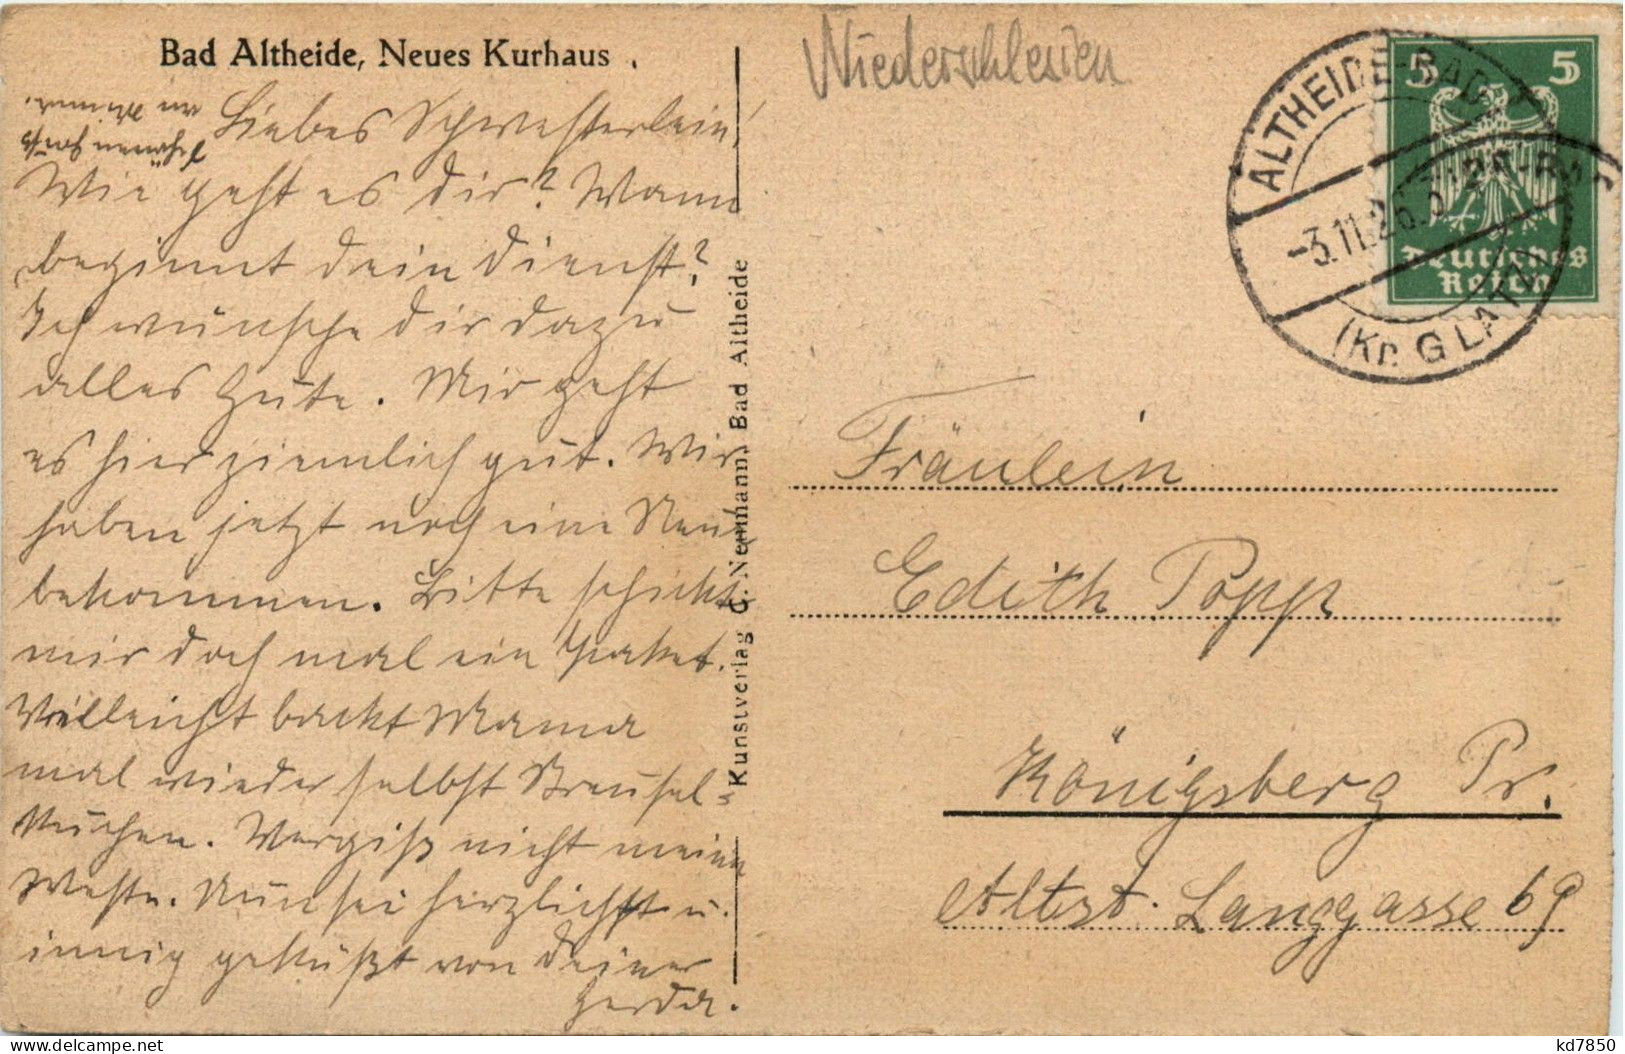 Bad Altheide, Neues Kurhaus.
Niederschlesien
Liebes Schwesterlein!
Wie geht es dir? Wann
beginnt dein Dienst?
Ich wünsche dir dazu
alles Gute. Mir geht
es hier ziemlich gut. Wir
haben jetzt noch eine Neue
bekommen. Bitte schickt
mir doch mal ein Paket.
Vielleicht backt Mama
mal wieder selbst Streusel-
kuchen. Vergiß nicht meine
Weste. Nun sei herzlichst u.
innig geküßt von Deiner
Gerda.
Schönen Gruß
an Mama.
Kunstverlag C. Neumann, Bad Altheide
ALTHEIDE-BAD
-3.11.26.
(Kr. GLATZ)
5 5
Deutsches
Reich
Fräulein
Edith Popp
Königsberg Pr.
Altst. Langgasse 69
kd7850